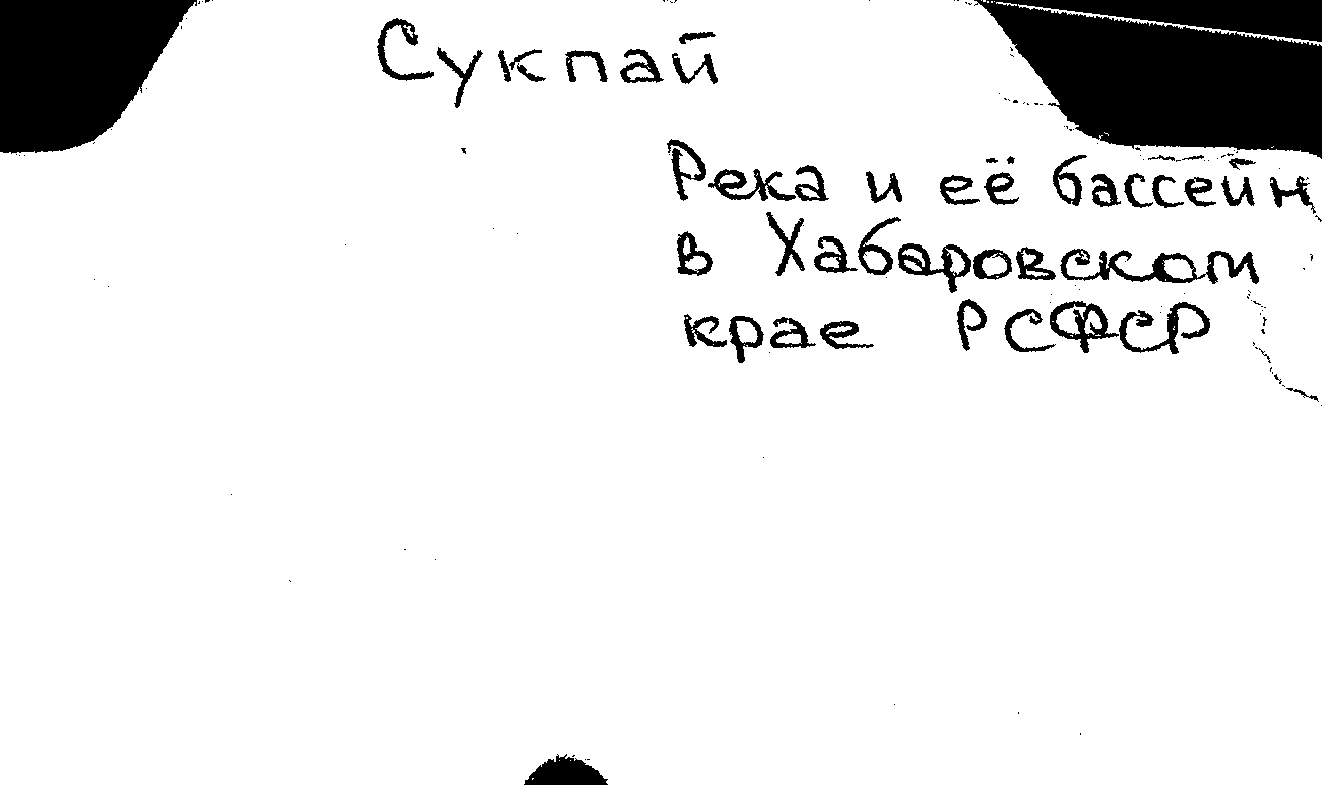 Сукпай
Река и её бассейн
в Хабаровском
крае РСФСР